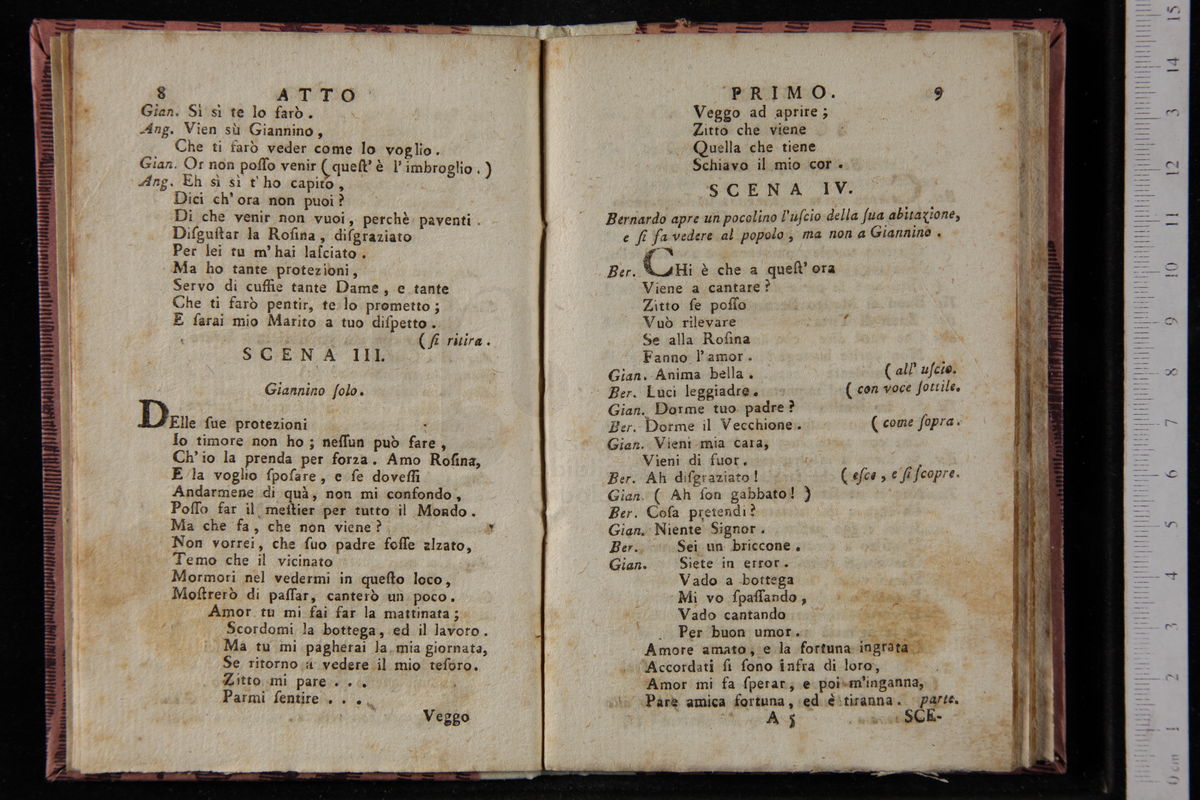 8 ATTO
Gian. Sì sì te lo farò.
Ang. Vien sù Giannino,
Che ti farò veder come lo voglio.
Gian. Or non poſſo venir (queſt' è l'imbroglio.)
Ang. Eh sì sì t'ho capito,
Dici ch' ora non puoi?
Di che venir non vuoi, perchè paventi
Diſguſtar la Roſina, diſgraziato
Per lei tu m'hai laſciato.
Ma ho tante protezioni,
Servo di cuffie tante Dame, e tante
Che ti farò pentir, te lo prometto;
E ſarai mio Marito a tuo diſpetto.
(ſi ritira.
SCENA III.
Giannino ſolo.
DElle ſue protezioni
Io timore non ho; neſſun può fare,
Ch'io la prenda per forza. Amo Roſina,
E la voglio ſpoſare, e ſe doveſſi
Andarmene di quà, non mi confondo,
Poſſo far il meſtier per tutto il Mondo.
Ma che fa, che non viene?
Non vorrei, che ſuo padre foſſe alzato,
Temo che il vicinato
Mormori nel vedermi in queſto loco,
Moſtrerò di paſſar, canterò un poco.
Amor tu mi fai far la mattinata;
Scordomi la bottega, ed il lavoro.
Ma tu mi pagherai la mia giornata,
Se ritorno a vedere il mio teſoro.
Zitto mi pare . . .
Parmi ſentire . . .
Veggo
PRIMO. 9
Veggo ad aprire;
Zitto che viene
Quella che tiene
Schiavo il mio cor.
SCENA IV.
Bernardo apre un pocolino l'uſcio della ſua abitazione,
e ſi fa vedere al popolo, ma non a Giannino.
Ber. CHi è che a queſt' ora
Viene a cantare?
Zitto ſe poſſo
Vuò rilevare
Se alla Roſina
Fanno l'amor.
Gian. Anima bella. (all' uſcio.
Ber. Luci leggiadre. (con voce ſottile.
Gian. Dorme tuo padre?
Ber. Dorme il Vecchione. (come ſopra.
Gian. Vieni mia cara,
Vieni di fuor.
Ber. Ah diſgraziato! (eſce, e ſi ſcopre.
Gian. (Ah ſon gabbato!)
Ber. Coſa pretendi?
Gian. Niente Signor.
Ber. Sei un briccone.
Gian. Siete in error.
Vado a bottega
Mi vo ſpaſſando,
Vado cantando
Per buon umor.
Amore amato, e la fortuna ingrata
Accordati ſi ſono infra di loro,
Amor mi fa ſperar, e poi m'inganna,
Pare amica fortuna, ed è tiranna. parte.
A 5 SCE-
0 cm 1 2 3 4 5 6 7 8 9 10 11 12 13 14 15